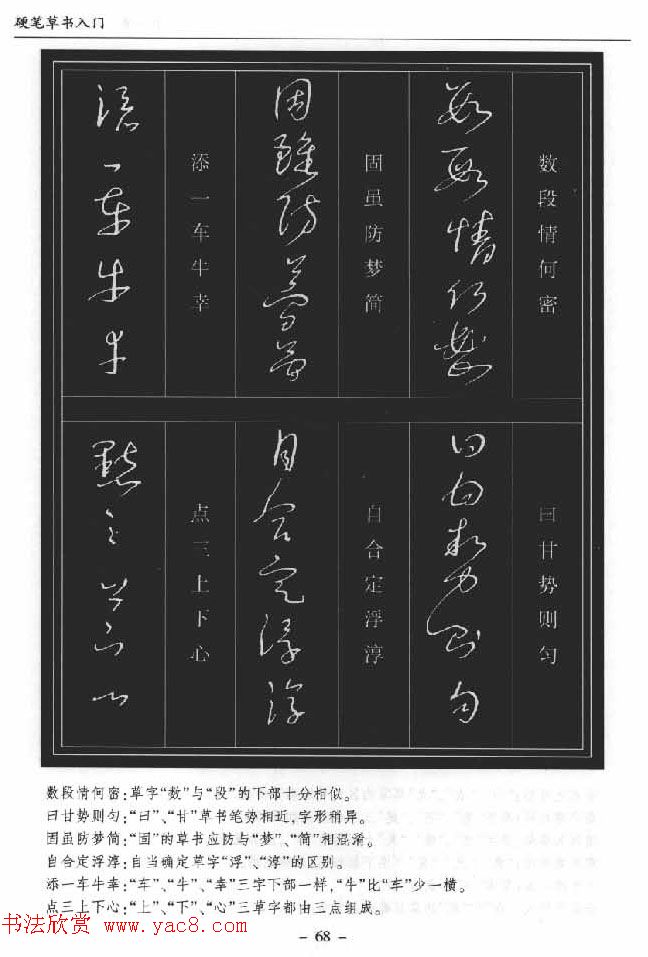 硬笔草书入门
数段情何密
数段情何密
固虽防梦简
固虽防梦简
添一车牛幸
添一车牛幸
曰甘势则匀
曰甘势则匀
自合定浮淳
自合定浮淳
点三上下心
点三上下心
数段情何密:草字“数”与“段”的下部十分相似。
曰甘势则匀:“曰”、“甘”草书笔势相近,字形稍异。
固虽防梦简:“固”的草书应防与“梦”、“简”相混淆。
自合定浮淳:自当确定草字“浮”、“淳”的区别。
添一车牛幸:“车”、“牛”、“幸”三字下部一样,“牛”比“车”少一横。
点三上下心:“上”、“下”、“心”三草字都由三点组成。
书法欣赏 www.yac8.com
- 68 -